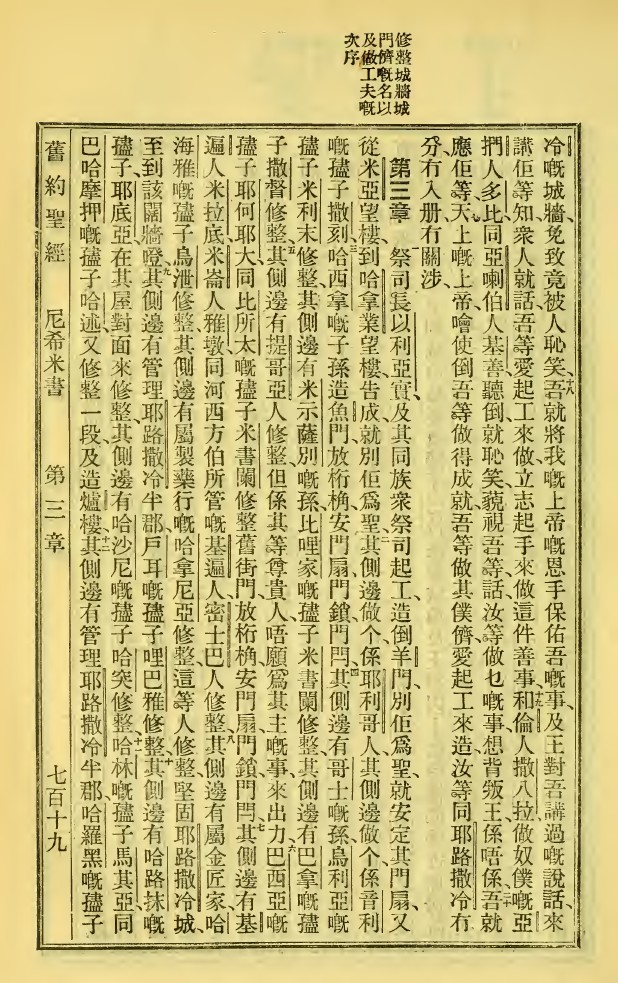 修整城牆城
門儕嘅名以
及做工夫嘅
次序
冷嘅城牆、免致竟被人恥笑、十八吾就將我嘅上帝嘅恩手保佑吾嘅事、及王對吾講過嘅說話、來
講佢等知、衆人就話、吾等愛起工來做、立志起手來做這件善事、十九和倫人撒八拉、做奴僕嘅亞
捫人多比、同亞喇伯人基善聽倒、就恥笑藐視吾等話、汝等做乜嘅事、想背叛王係唔係、二十吾就
應佢等、天上嘅上帝噲使倒吾等做得成就、吾等做其僕儕、愛起工來造、汝等同耶路撒冷冇
分、冇入册、冇關涉、
第三章 一祭司長以利亞實、及其同族衆祭司起工、造倒羊門、別佢爲聖、就安定其門扇、又
從米亞望樓到哈拿業望樓告成、就別佢爲聖、二其側邊做个係耶利哥人、其側邊做个係音利
嘅孻子撒刻、三哈西拿嘅子孫造魚門、放桁桷、安門扇、門鎖、門閂、四其側邊有哥士嘅孫、烏利亞嘅
孻子米利末修整、其側邊有米示薩別嘅孫、比哩家嘅孻子米書蘭修整、其側邊有巴拿嘅孻
子撒督修整、五其側邊有提哥亞人修整、但係其等尊貴人唔願爲其主嘅事來出力、六巴西亞嘅
孻子耶何耶大、同比所太嘅孻子米書蘭修整舊街門、放桁桷、安門扇、門鎖、門閂、七其側邊有基
遍人米拉底、米崙人雅墩、同河西方伯所管嘅基遍人、密士巴人修整、八其側邊有屬金匠家、哈
海雅嘅孻子烏泄修整、其側邊有屬製藥行嘅哈拿尼亞修整、這等人修整堅固耶路撒冷城、
至到該闊牆噔、九其側邊有管理耶路撒冷半郡、戶耳嘅孻子哩巴雅修整、十其側邊有哈路抹嘅
孻子耶底亞、在其屋對面來修整、其側邊有哈沙尼嘅孻子哈突修整、十一哈林嘅孻子馬其亞、同
巴哈摩押嘅孻子哈述、又修整一段、及造爐樓、十二其側邊有管理耶路撒冷半郡、哈羅黑嘅孻子
舊約聖經 尼希米書 第三章 七百十九